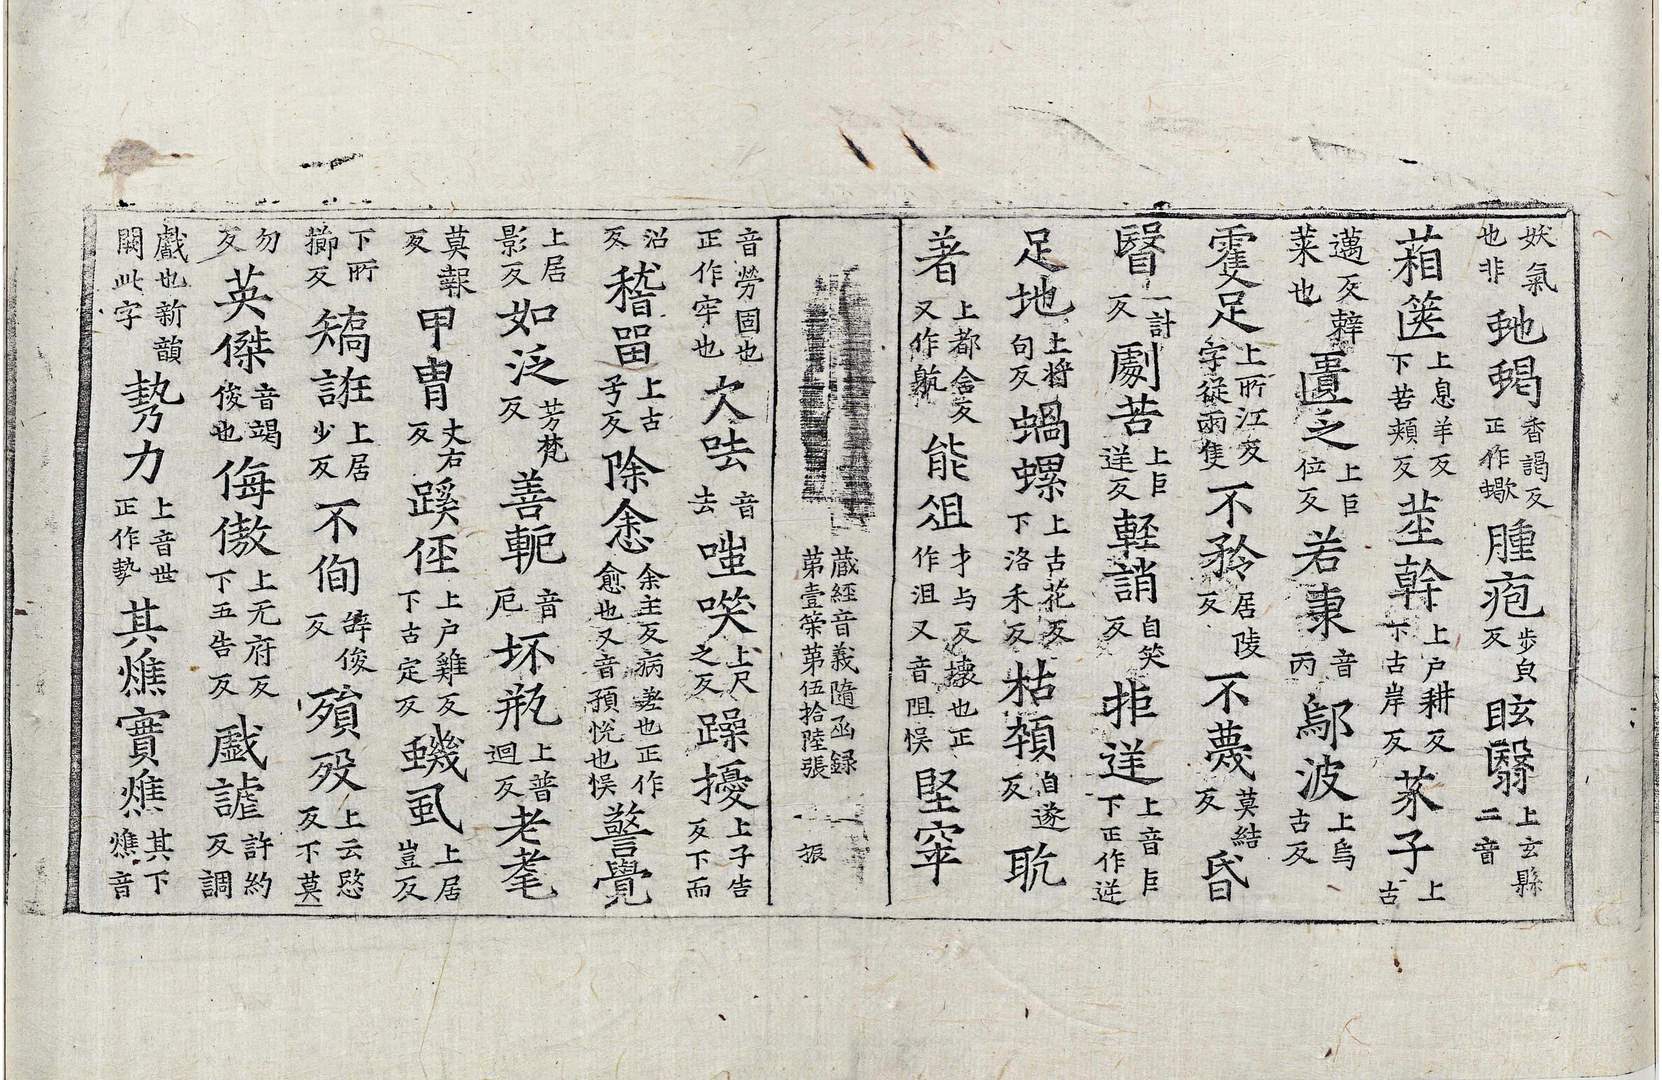 妖氣也非虵蝎香謁反正作蠍腫疱步皃反眩翳上玄縣二音
葙篋上息羊反下苦頰反莖幹上戶耕反下古岸反芥子上古
邁反辢菜也匱乏上巨位反若秉音丙鄔波上烏古反
雙足上所江反字從雨隻不矜居陵反不蔑莫結反昏
瞖一計反劇苦上巨逆反輕誚自笑反拒逆上音巨下正作逆
足地上將句反蝸螺上古花反下洛禾反枯顇自遂反耽
著上都含反又作躭能俎才与反壞也正作沮又音阻悮堅窂
藏經音義隨函録第壹筞第伍拾陸張 振
音勞固也正作牢也欠呿音去嗤笑上尺之反躁擾上子告反下而
沼反稽留上古子反除悆余主反病差也正作愈也又音預悅也悮警覺
上居影反如泛芳梵反善軛音厄坏瓶上普迴反老耄
莫報反甲冑丈右反蹊徑上户雞反下古定反蟣虱上居豈反
下所擳反矯誑上居少反不侚辝俊反殞歿上云愍反下莫
勿反英傑音竭俊也侮傲上无府反下五告反戲謔許約反調
戲也新韻闕此字勢力上音世正作勢其燋實燋其下燋音